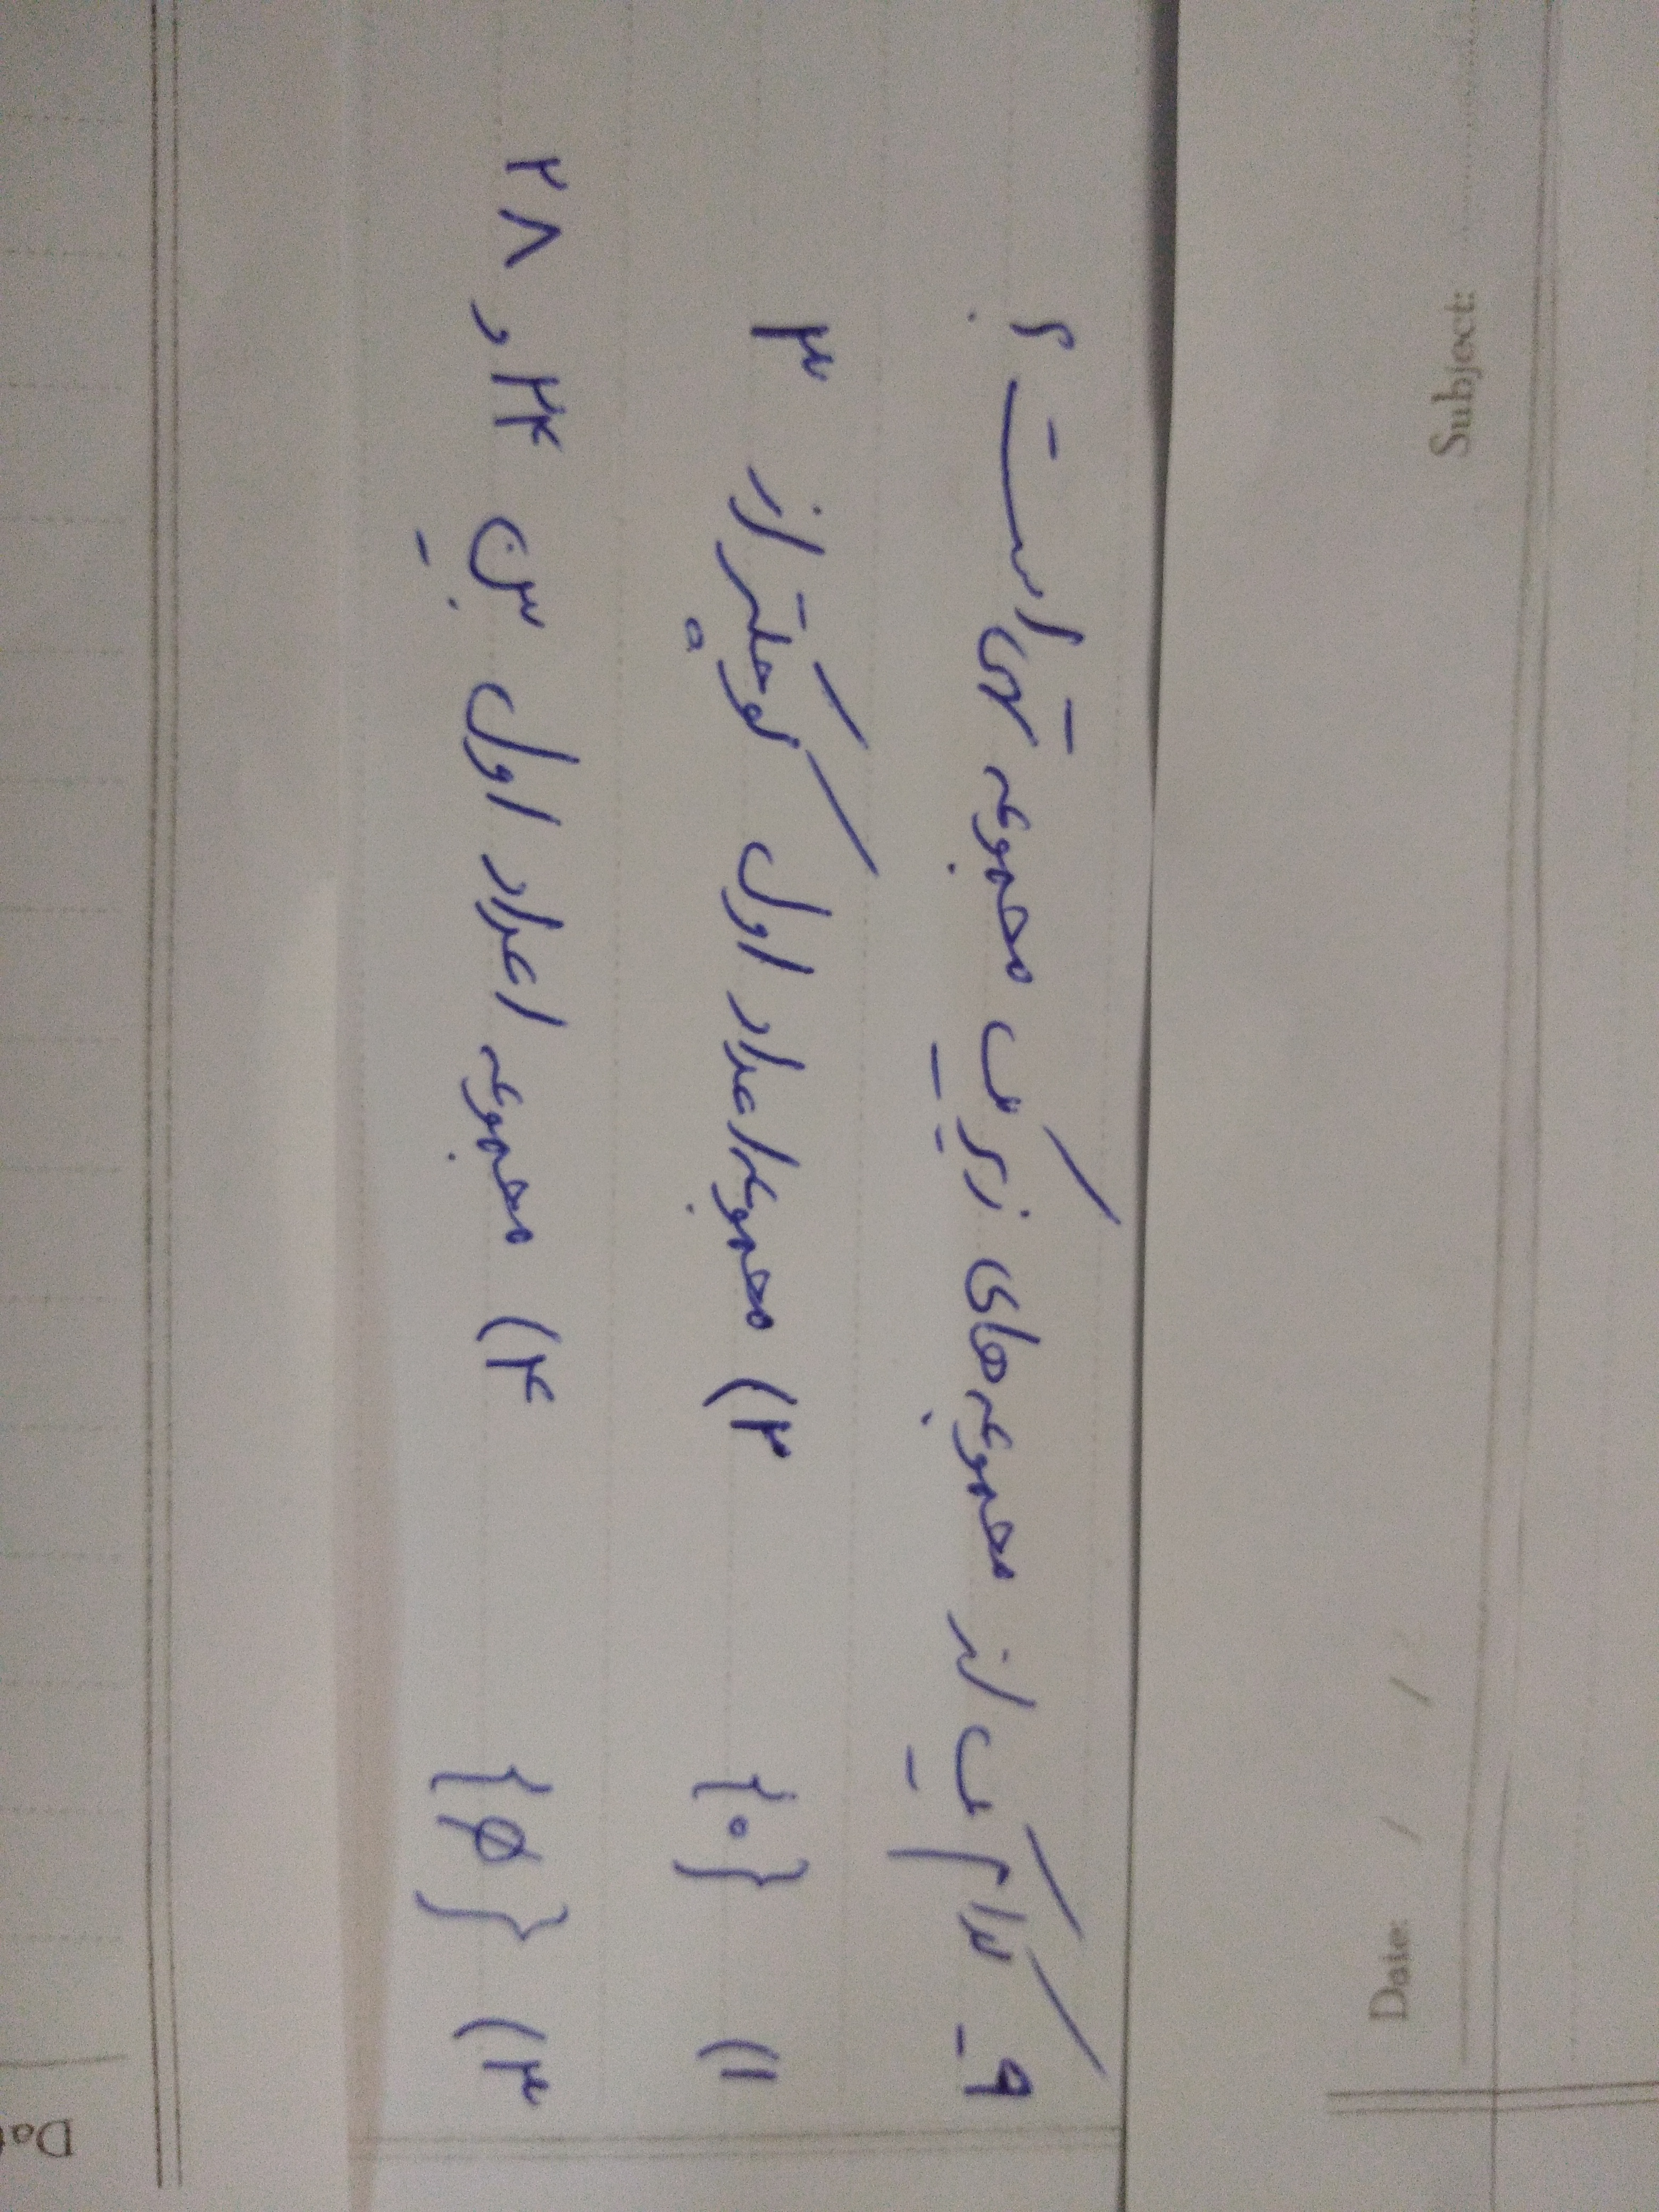 Subject:
Date: / /
۹- کدام یک از مجموعه‌های زیر یک مجموعه تهی است؟
۱) {۰} ۲) مجموعه اعداد اول کوچکتر از ۳
۳) {∅} ۴) مجموعه اعداد اول بین ۲۴ و ۲۸
Dat